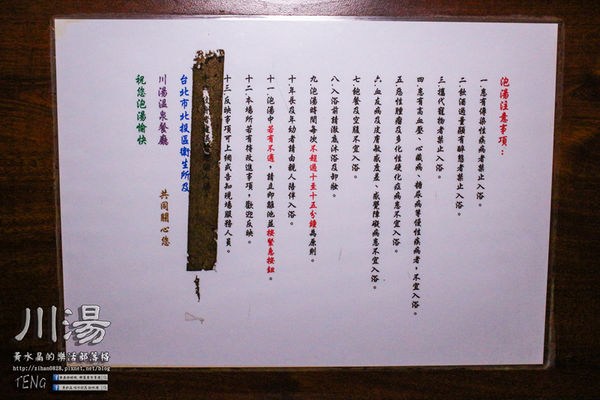 泡湯注意事項：
一.患有傳染性疾病者禁止入浴。
二.飲酒過量顯有醉態者禁止入浴。
三.攜代寵物者禁止入浴。
四.患有高血壓、心臟病、糖尿病等慢性疾病者,不宜入浴。
五.惡性腫瘤及多化性硬化症病患不宜入浴。
六.血友病及皮膚敏感度差、感覺障礙病患不宜入浴。
七.飽餐及空腹不宜入浴。
八.入浴前請澈底沐浴及卸妝。
九.泡湯時間每次不超過十至十五分鐘為原則。
十.年長及年幼者請由親人陪伴入浴。
十一.泡湯中若有不適，請立即離池並按緊急按鈕。
十二.本場所若有待改進事項，歡迎反映。
十三.反映事項可上網或告知現場服務人員。
台北市北投區衛生所及
川湯溫泉餐廳
共同關心您
祝您泡湯愉快
川湯
黃水晶的樂活部落格
http://zihan0828.pixnet.net/blog
TENG